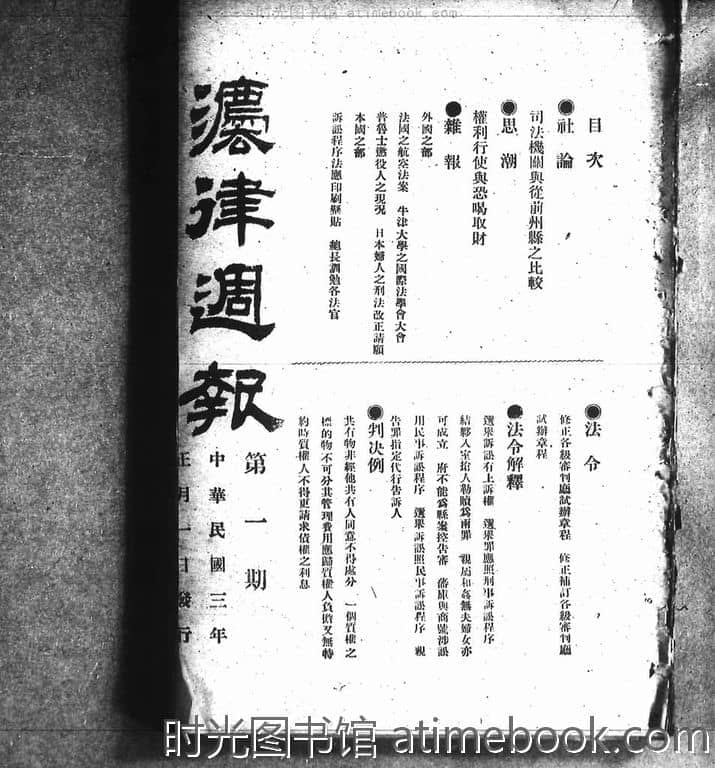 时光图书馆 atimebook.com
目次
●社論
司法機關與從前州縣之比較
●思潮
權利行使與恐喝取財
●雜報
外國之部
法國之航空法案 牛津大學之國際法學會大會
普魯士懲役人之現況 日本婦人之刑法改正請願
本國之部
訴訟程序法應印刷壁貼 總長訓勉各法官
●法令
修正各級審判廳試辦章程 修正補訂各級審判廳
試辦章程
●法令解釋
選舉訴訟有上訴權 選舉罪應照刑事訴訟程序
結夥入室搶人勒贖爲兩罪 親屬和姦無夫婦女亦
可成立 府不能爲縣案控告審 藩庫與商號涉訟
用民事訴訟程序 選舉訴訟照民事訴訟程序 親
告罪指定代行告訴人
●判決例
共有物非經他共有人同意不得處分 一個質權之
標的物不可分其管理費用應歸質權人負擔又無特
約時質權人不得更請求債權之利息
濃律週報
第一期
中華民國三年
正月一日發行
时光图书馆 atimebook.com